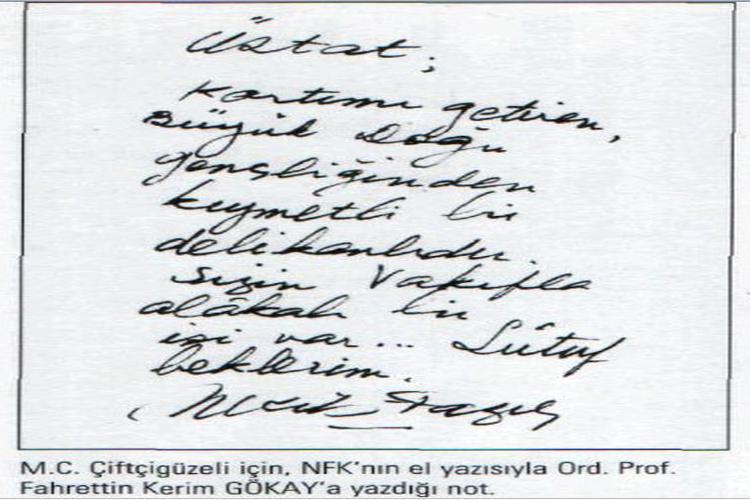 Üstat,
Kartımı getiren,
Büyük Doğu
gençliğinden
kıymetli bir
delikanlıdır.
Sizin Vakıfla
alâkalı bir
işi var... Lûtuf
beklerim.
Necip Fazıl
M.C. Çiftçigüzeli için, NFK'nın el yazısıyla Ord. Prof.
Fahrettin Kerim GÖKAY'a yazdığı not.